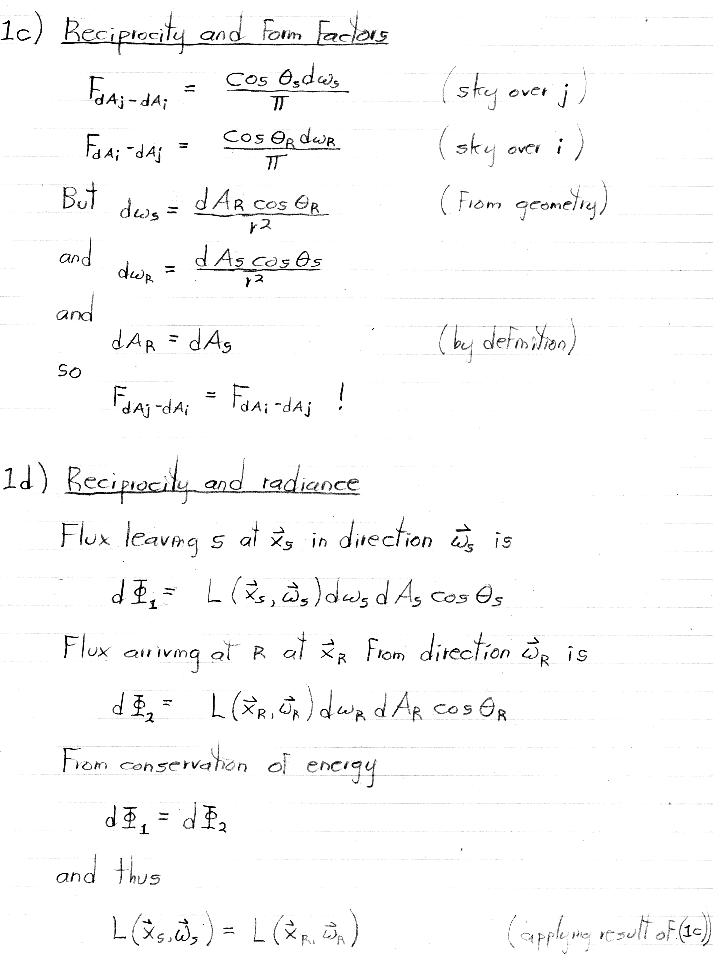 1c) Reciprocity and Form Factors
F_{dAj-dAi} = cos θ_s dω_s / π (sky over j)
F_{dAi-dAj} = cos θ_R dω_R / π (sky over i)
But dω_s = dA_R cos θ_R / r² (From geometry)
and dω_R = dA_s cos θ_s / r²
and
dA_R = dA_s (by definition)
so
F_{dAj-dAi} = F_{dAi-dAj} !
1d) Reciprocity and radiance
Flux leaving s at x⃗_s in direction ω⃗_s is
dΦ₁ = L(x⃗_s, ω⃗_s) dω_s dA_s cos θ_s
Flux arriving at R at x⃗_R From direction ω⃗_R is
dΦ₂ = L(x⃗_R, ω⃗_R) dω_R dA_R cos θ_R
From conservation of energy
dΦ₁ = dΦ₂
and thus
L(x⃗_s, ω⃗_s) = L(x⃗_R, ω⃗_R) (applying result of (1c))